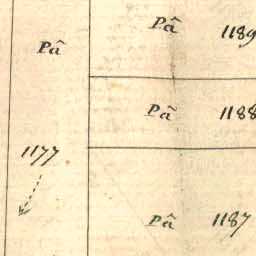 Pâ 1189
Pâ
Pâ 1188
1177
Pâ 1187